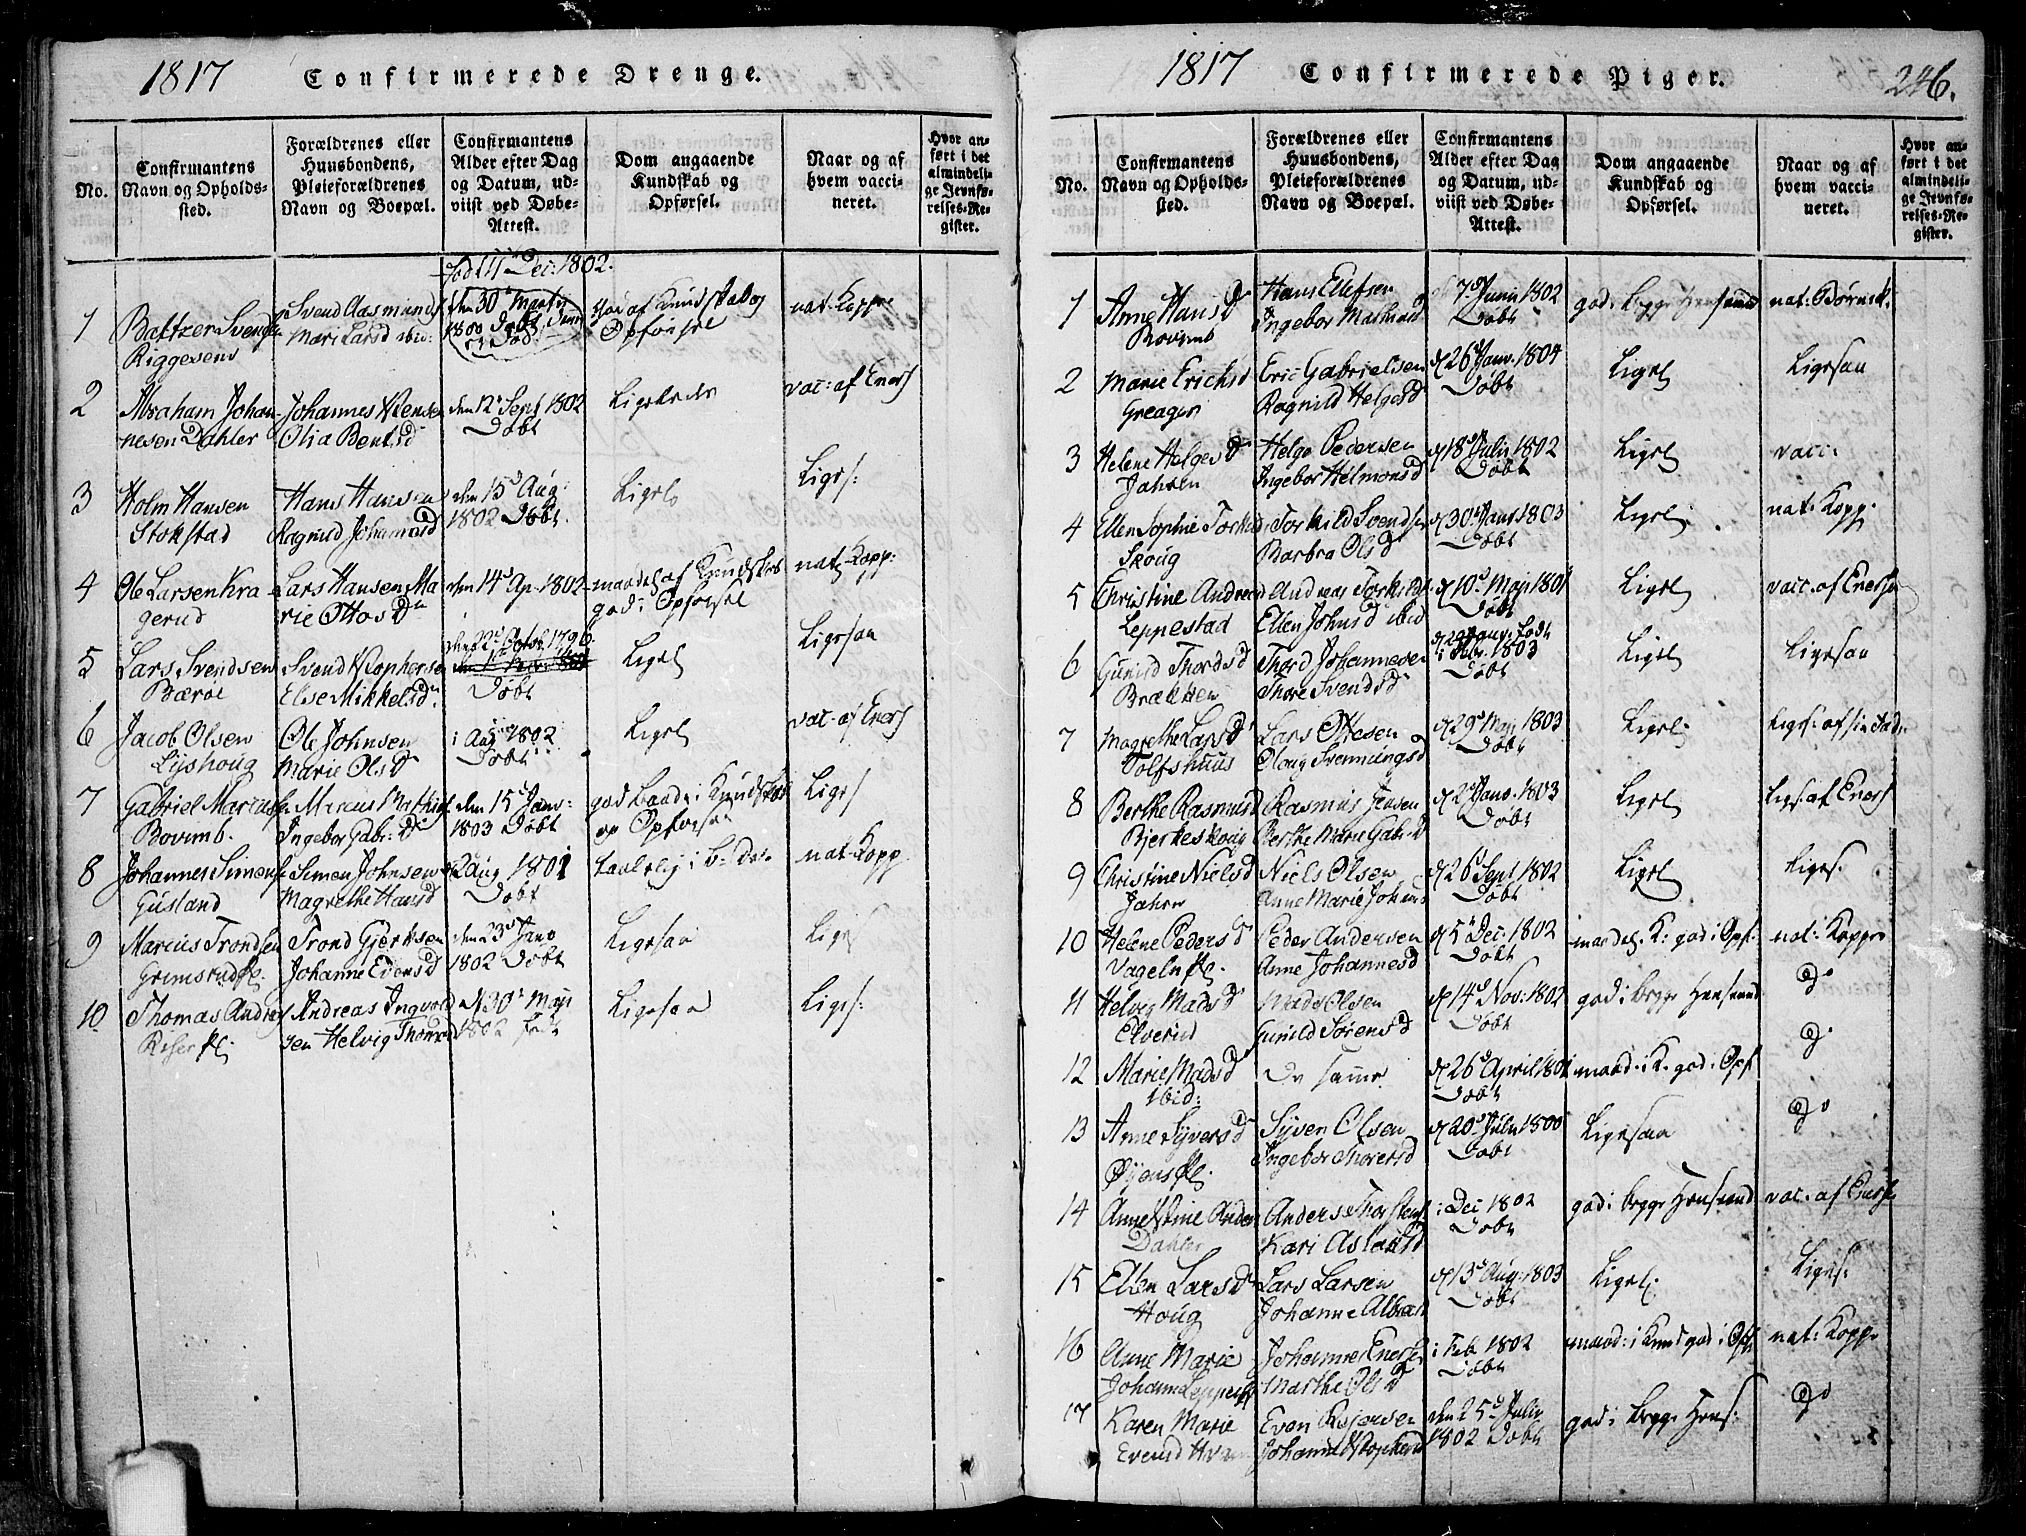 1817 Confirmerede Drenge.
No.
Confirmantens
Navn og Opholds-
sted.
Forældrenes eller
Huusbondens,
Pleieforældrenes
Navn og Boepæl.
Confirmantens
Alder efter Dag
og Datum, ud-
viist ved Døbe-
Attest.
Dom angaaende
Kundskab og
Opførsel.
Naar og af
hvem vacci-
neret.
Hvor an-
ført i det
almindeli-
ge Jevnfø-
relses-Re-
gister.
1
Baltzer Svends
Svend Aasmunds
Mari Larsd ibid:
født 11 Dec: 1802.
den 30 Marty
1800 Døbt
god af Kundskab og
Opførsel
nat. Kopper
2
Abraham Johan-
nesen Dahler
Johannes
Olia Bentsd
den 12 Sept 1802
Døbt
Ligeledes
vac: af Eners
3
Holm Hansen
Stokstad
Hans Hansen
Ragnild Johannsd
den 15d Aug:
1802 Døbt.
Ligel
Liges:
4
Ole Larsen Kra-
gerud
Lars Hansen Ma-
rie Ottosd
den 14d Ap. 1802
maadel af Kundskab
god i Opførsel
nat. Kopp:
5
Lars Svendsen
Bærøe
Svend
Else Mikkelsd
den 22d Octob. 1796
Døbt
Ligel
Ligesaa
6
Jacob Olsen
Lijshoug
Ole Johnsen
Marie Olsd
i Aug 1802
Døbt
Ligel
vac. af Eners
7
Gabriel Marcus
Bovimb.
Marcus Mathis
Ingebor Gabr: D
den 15d Janv:
1803 Døbt
god baade i Kundskab
og Opførsel
Liges
8
Johannes Simens
Gusland
Simen Johnsen
Magrethe Hansd
Aug 1801
Døbt
taalelig i b: Dele
nat. Kopp
9
Marcus Trondsen
Grimsrud
Trond Gjertsen
Johanne Evensd
den 23d Janv
1802 Døbt
Ligesaa
Liges
10
Thomas Andreas
Andreas Ingvold
sen Helvig Thom
d 30 Maji
1802 født
Ligesaa
Liges:
1817 Confirmerede Piger. 246.
No.
Confirmantens
Navn og Opholds-
sted.
Forældrenes eller
Huusbondens,
Pleieforældrenes
Navn og Boepæl.
Confirmantens
Alder efter Dag
og Datum, ud-
viist ved Døbe-
Attest.
Dom angaaende
Kundskab og
Opførsel.
Naar og af
hvem vacci-
neret.
Hvor an-
ført i det
almindeli-
ge Jevnfø-
relses-Re-
gister.
1
Anne Hansd
Bovimb
Hans Ellefsen
Ingebor Mathiasd
7d Junii 1802
Døbt
god i begge Hensende
nat. Børnek.
2
Marie Erichsd
Greager
Eric Gabrielsen
Ragnild Helgesd
d 26 Janv. 1804
Døbt
Ligel
Ligesaa
3
Helene Helgesd
Jahren
Helge Pedersen
Ingebor Helmonsd
d 18d Julii 1802
Døbt
Ligel
vacc:
4
Ellen Sophie Torkild
Skoug
Torkild Svends
Barbra Olsd
d 30d Janv 1803
Døbt
Ligel.
nat. Kopp:
5
Christine Andreasd
Leppestad
Andreas Torkilds
Ellen Johnsd ibid
d 10d Maji 1801
Døbt
Ligel
vacc. af Eners
6
Gunild Thordsd
Brækken
Thord Johannesen
Thore Svendsd
i Febr. 1803
Døbt
Ligel
Ligesaa
7
Magrethe Larsd
Tolfshuus
Lars Ottesen
Oloug Svenningsd
d 29d Maji 1803
Døbt
Ligel:
8
Berthe Rasmusd
Bjerkeskoug
Rasmus Jensen
Berthe Marie Gab: D
d 2d Janv. 1803
Døbt
Ligel
Liges. af Eners
9
Christine Nielsd
Jahren
Niels Olsen
Anne Marie Johansd
d 26d Sept 1802
Døbt
Ligel
Liges.
10
Helene Pedersd
Peder Andersen
Anne Johannesd
d 5d Dec: 1802
Døbt
maadel. K: god i Opf.
nat: Kopper
11
Helvig Madsd
Elverud
Mads Olsen
Gunild Sørensd
d 14d Nov: 1802
Døbt
god i begge Hensende
do
12
Marie Madsd
ibid:
De samme
d 26d April 1801
Døbt
maad: i K. god i Opf
do
13
Anne Syversd
Syver Olsen
Ingebor Thoresd
d 20d Julii 1800
Døbt
Ligesaa
do
14
Anne Stine Anders
Dahler
Anders Thorstens
Kari Aslaksd
i Dec 1802
Døbt
god i begge Hensende
vac. af Eners
15
Ellen Larsd
Houg
Lars Larsen
Johanne
d 13d Aug: 1803
Døbt
Ligel:
Liges:
16
Anne Marie
Johannes Eners
Marthe Olsd
i Feb 1802
Døbt
maad: i Kund god i Opf
nat: Kopper
17
Karen Marie
Even
Johanne
den 25d Julii
1802 Døbt
god i begge Hens:
do